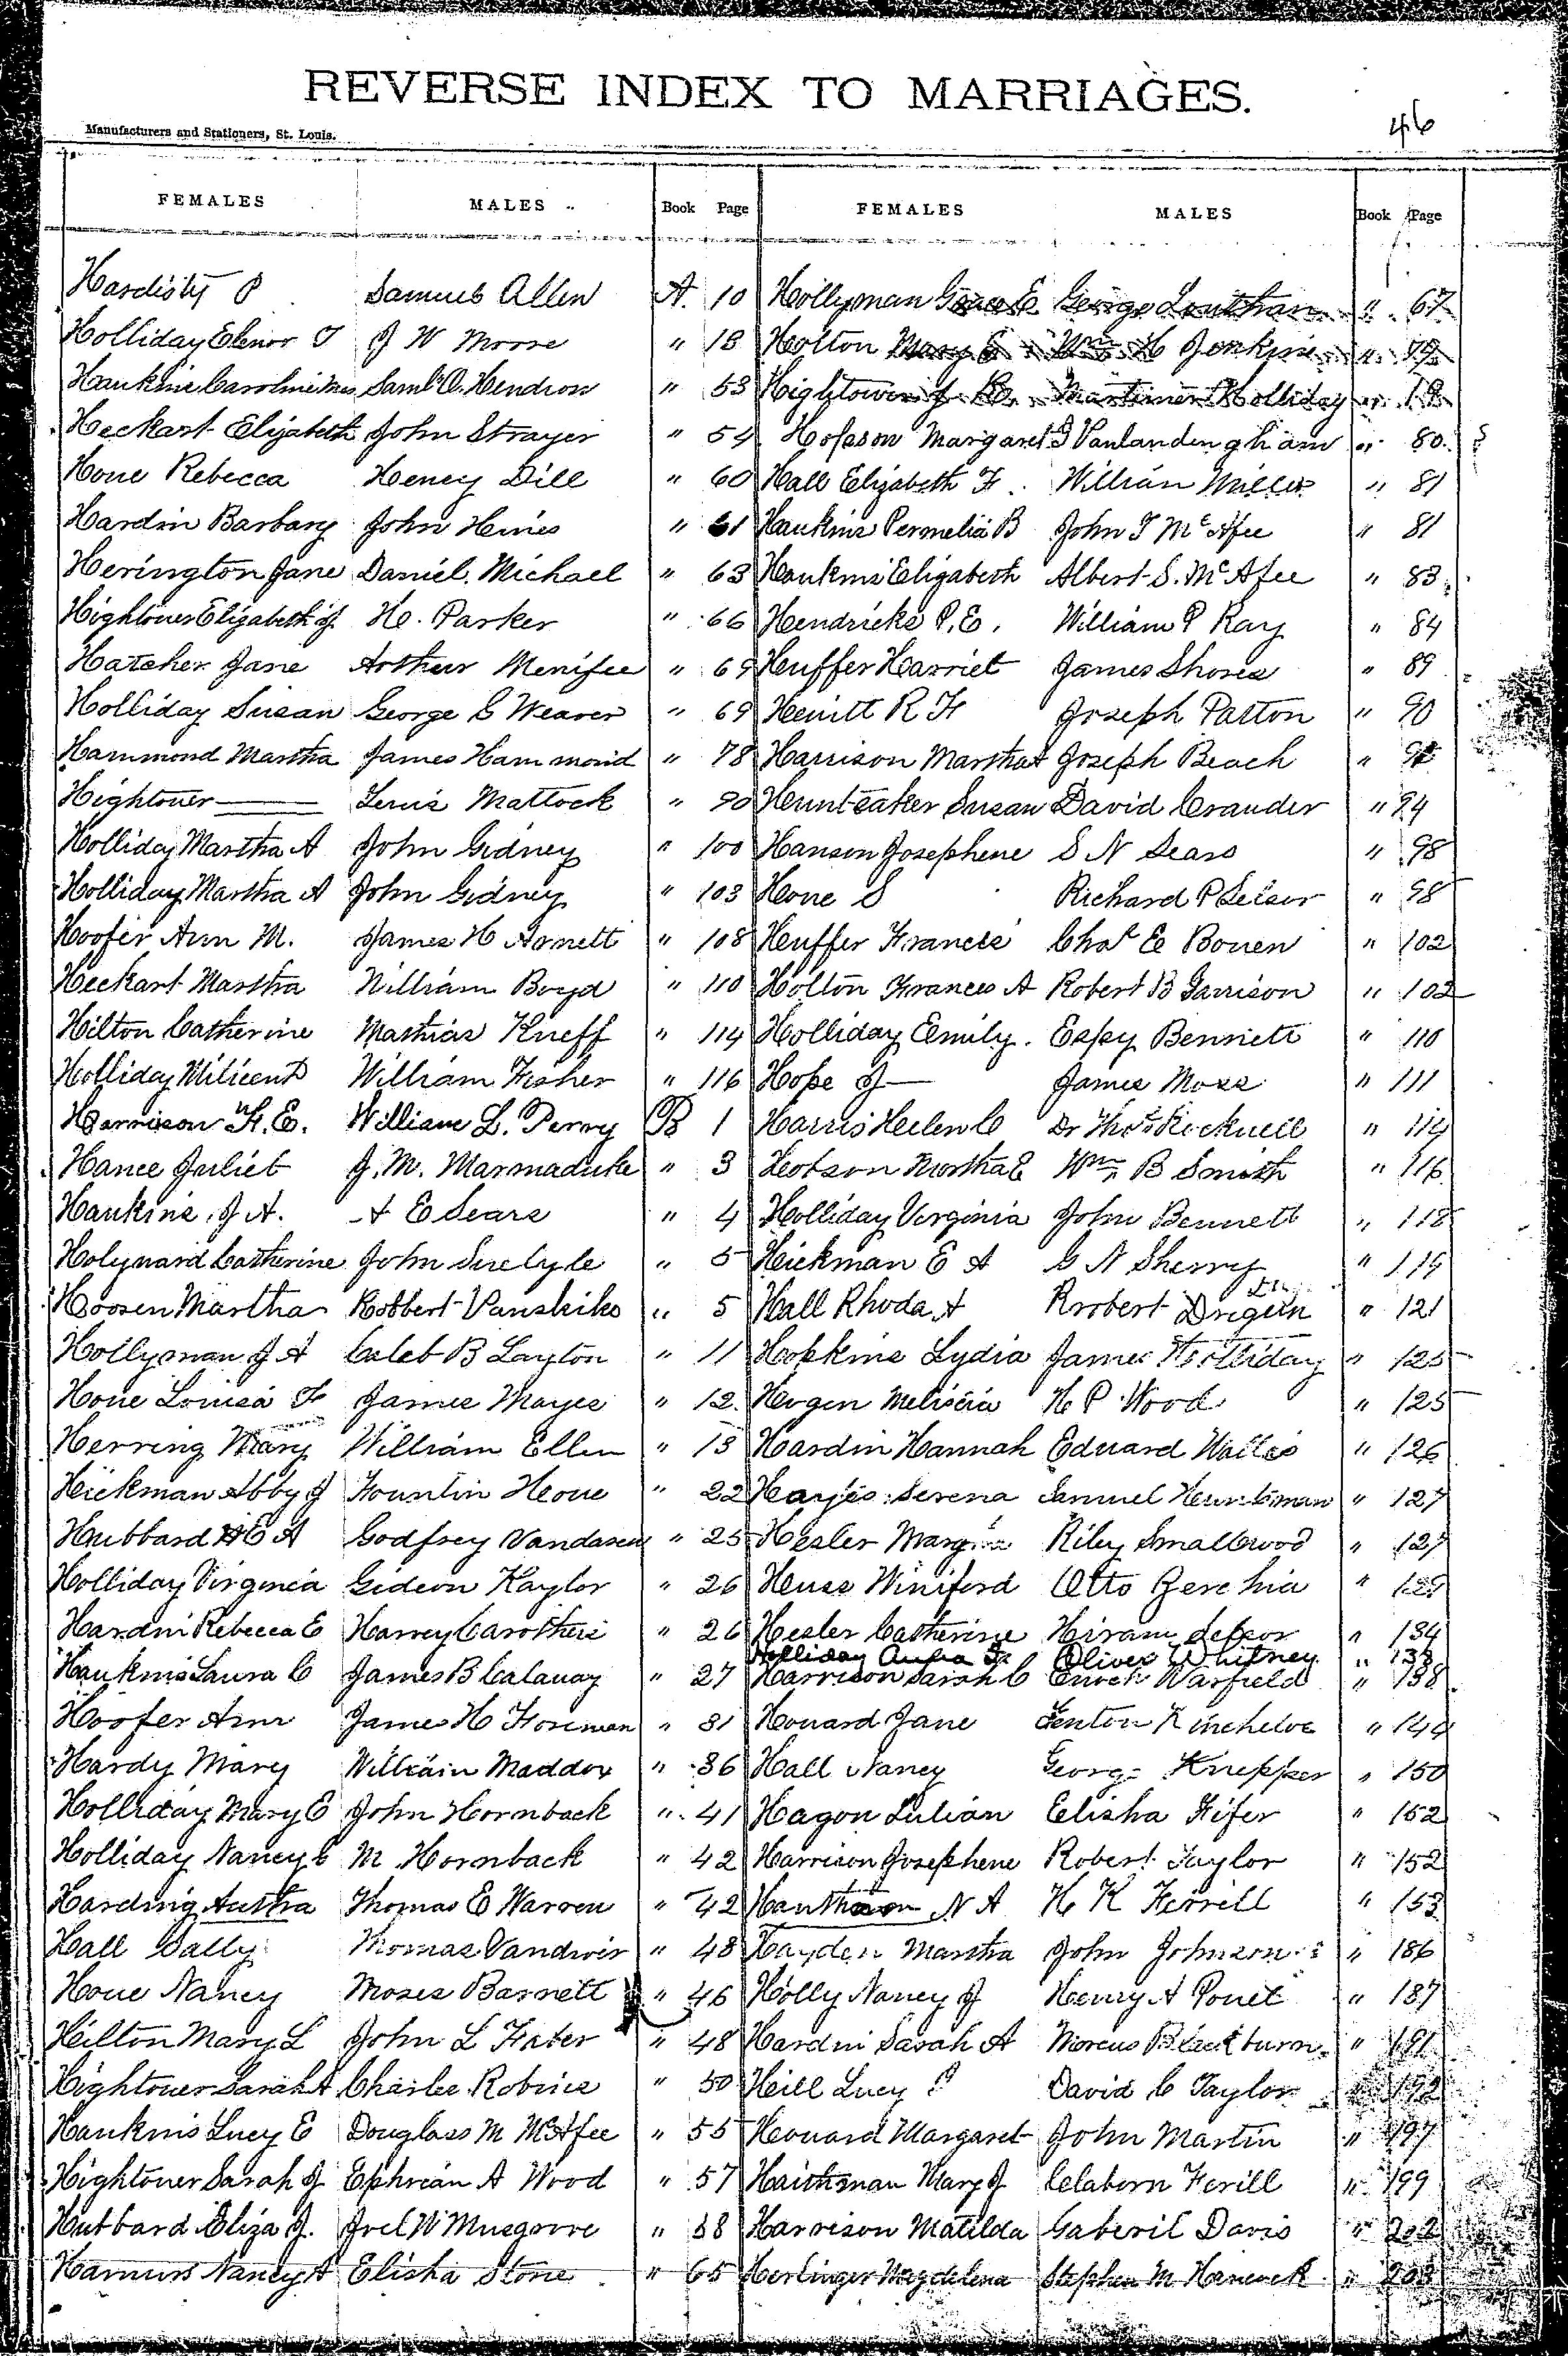 REVERSE INDEX TO MARRIAGES.
46
Manufacturers and Stationers, St. Louis.
FEMALES MALES Book Page FEMALES MALES Book Page
Hardisty P Samuel Allen A. 10 Hollyman George " 67
Holliday Elenor J W Moore " 18 Holton Mary Wm H Jenkins "
Haukins Caroline Mrs Saml O. Hendron " 53 Hightower J Martimer Holliday "
Heckart Elizabeth John Strayer " 54 Margaret J Vanlandengham " 80
Houe Rebecca Heney Dill " 60 Hall Elizabeth F. William Miller " 81
Hardin Barbary John Hines " 61 Haukins Permelia B John T McAfee " 81
Herington Jane Daniel Michael " 63 Haukins Elizabeth Albert S. McAfee " 83
Hightouer Elizabeth J. H. Parker " 66 Hendricks P. E. William P Ray " 84
Hatcher Jane Arthur Menifee " 69 Huffer Harriet James Shores " 89
Holliday Susan George C Weaver " 69 Heuitt R F Joseph Patton " 90
Hammond Martha James Hammond " 78 Harrison Martha A Joseph Beach "
Hightouer Leuis Mattock " 90 Huntsaker Susan David Crauder " 94
Holliday Martha A John Gidney " 100 Hanson Josephene S N Sears " 98
Holliday Martha A John Gidney " 103 Houe S Richard P Selsor " 98
Hoofer Ann M. James H Arnett " 108 Huffer Francis Chas E Bouen " 102
Heckart Martha William Boyd " 110 Holton Frances A Robert B Garrison " 102
Hilton Catherine Mathias Kneff " 114 Holliday Emily. Espy Bennett " 110
Holliday Milicent William Fisher " 116 Hope J James Moss " 111
Harrison F. E. William L. Perry B 1 Harris Hellen C Dr Thos " 114
Hance Juliet J. M. Marmaduke " 3 Hobson Martha E Wm B Smith " 116
Haukins, J A. A E Sears " 4 Holliday Virginia John Bennett " 118
Holynard Catherine John Surlyle " 5 Hickman E A G N Sherry " 119
Hoosen Martha Robbert Vanskike " 5 Hall Rhoda A Robert " 121
Hollyman J A Caleb B Layton " 11 Hopkins Lydia James Holliday " 125
Houe Louisa F James Mayes " 12 Hogen H P Wood " 125
Herring Mary William Ellen " 13 Hardin Hannah Eduard " 126
Hickman Abby J Fountin Houe " 22 Hayes Serena Samuel " 127
Hubbard H E A Godfrey " 25 Hesler Riley Smallwood " 127
Holliday Virginia Gideon Kaylor " 26 Huss Winiford Otto Zerchia " 129
Hardin Rebecca E Harvey Carothers " 26 Hesler Catherine Hiram Selsor " 134
Holliday Oliver Whitney "
Haukins Laura C James B Calauay " 27 Harrison Sarah C Enoch Warfield " 138
Hoofer Ann James H Foreman " 31 Houard Jane Fenton Kincheloe " 144
Hardy Mary William Maddox " 36 Hall Nancy George Knepper " 150
Holliday Mary E John Hornback " 41 Hagon Lulian Elisha Fifer " 152
Holliday Nancy C M Hornback " 42 Harrison Josephene Robert Taylor " 152
Harding Thomas E Warren " 42 N A H K Ferrell " 153
Hall Sally Thomas " 48 Hayden Martha John Johnson " 186
Houe Nancy Moses Barnett " 46 Holly Nancy J Henry A " 187
Hilton Mary L John L " 48 Hardin Sarah A Marcus Blackburn " 191
Hightouer Sarah A Charles Robins " 50 Hill Lucy P David C Taylor " 192
Haukins Lucy E Douglass M McAfee " 55 Houard Margaret John Martin " 197
Hightouer Sarah J Ephrian A Wood " 57 Mary J Claborn Ferill " 199
Hubbard Eliza J. Joel W Musgrove " 58 Harrison Matilda Gaberil Davis " 202
Nancy A Elisha Stone " 65 Herlinger Magdelena Stephen M Hancock " 203